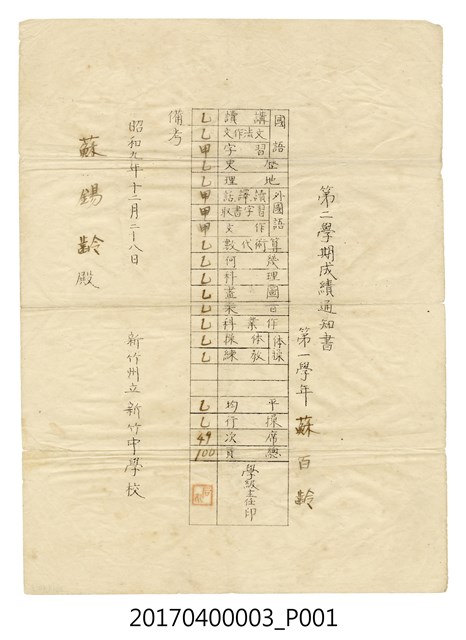 第二學期成績通知書
第一學年 蘇百齡
國語 講讀 乙
文法作文 乙
習字 甲
歷史 乙
地理 乙
外國語 讀譯話 甲
習字書取 甲
作文 甲
算術代數 乙
幾何 乙
理科 乙
圖畫 乙
音樂 乙
作業科 乙
体操 体操 乙
教練 乙
平均 乙
操行 乙
席次 49
總員 100
學級主任印
備考
昭和九年十二月二十八日
新竹州立 新竹中學校
蘇錫齡殿
20170400003_P001